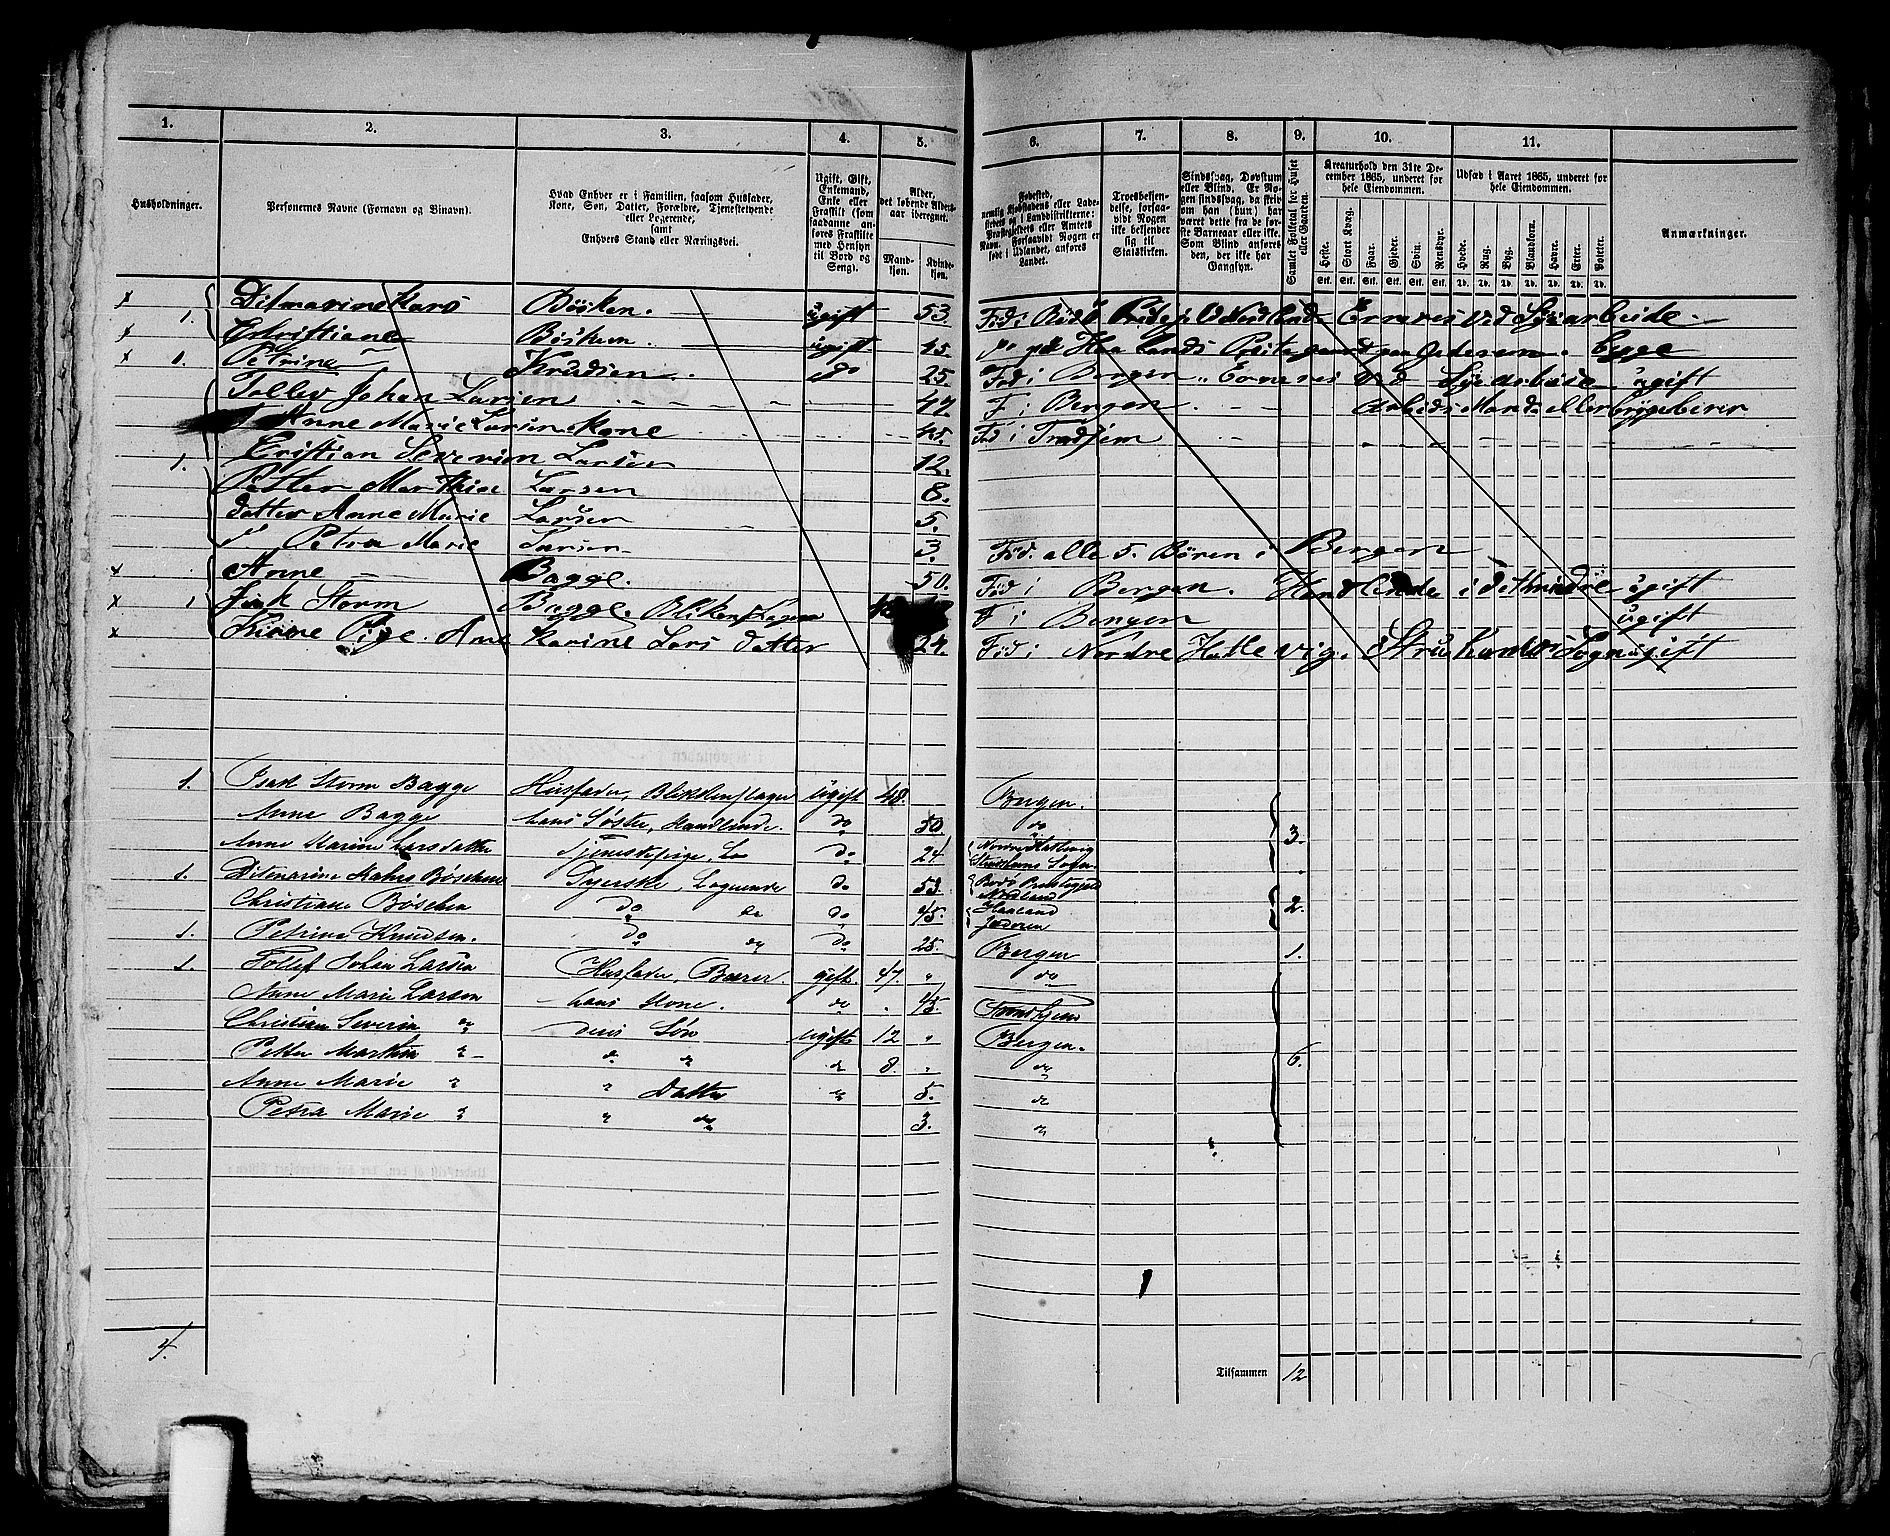 1. 2. 3. 4. 5. 6. 7. 8. 9. 10. 11.
Husholdninger.
Personernes Navne (Fornavn og Binavn).
Hvad Enhver er i Familien, saasom Husfader,
Kone, Søn, Datter, Forældre, Tjenestetyende
eller Logerende,
samt
Enhvers Stand eller Næringsvei.
Ugift, Gift,
Enkemand,
Enke eller
Fraskilt (som
saadanne an-
føres Fraskilte
med Hensyn
til Bord og
Seng).
Alder,
det løbende Alders-
aar iberegnet.
Mand-
kjøn.
Kvinde-
kjøn.
Fødested,
nemlig Kjøbstadens eller Lade-
stedets Navn i Landdistrikterne:
Præstegjeldets eller Amtets
Navn. Forsaavidt Nogen er
født i Udlandet, anføres
Landet.
Troesbekjen-
delse, forsaa-
vidt Nogen
ikke bekjender
sig til
Statskirken.
Sindssvag, Døvstum
eller Blind. Er No-
gen sindssvag, da skriv
om han (hun) har
været dette fra de før-
ste Barneaar eller ikke.
Som Blind anføres
den, der ikke har
Gangsyn.
Samlet Folketal for Huset
eller Gaarden.
Kreaturhold den 31te De-
cember 1865, underet for
hele Eiendommen.
Heste. Stort Kvæg. Faar. Gjeder. Svin. Rensdyr.
Stk. Stk. Stk. Stk. Stk. Stk.
Udsæd i Aaret 1865, underet for
hele Eiendommen.
Hvede. Rug. Byg. Blandkorn. Havre. Erter. Poteter.
Td. Td. Td. Td. Td. Td. Td.
Anmærkninger.
x 1. Ditmarine Kars Bösken. ugift 53. Föd i Bodö Nordland Erneres ved Syearbeide
x Christiane Bösken ugift 45. do paa Jederen.
x 1. Petrine Knudsen do 25. Föd i Bergen Erneres ved Syearbeide ugift
Tollev Johan Larsen 47. F i Bergen Arbeids Mand eller
Anne Marie Larsen Kone 45. Föd i Trodjem
1. Cristian Severien Larsen 12.
Petter Marthin Larsen 8.
datter Anne Marie Larsen 5.
Petra Marie Larsen 3. Föd. alle 5. Bören i Bergen
x Anne Bagge. 50. Föd i Bergen. ugift
x 1 Isak Storm Bagge. F i Bergen ugift
x Pige. Ane Karine Lars datter 24. Föd i Nordre ugift
1. Isak Storm Bagge Husfader, Blikkenslager Ugift 48. Bergen.
Anne Bagge hans Søster, Handlende. do 50. do 3.
Anne Karine Larsdatter Tjenestepige do 24
1. Ditmarine Kahrs Bøschen Syerske, Logerende do 53. Bodø Præstegjeld Nordland
Christiane Bøschen do do do 45. Haaland Jæderen 2.
1. Petrine Knudsen. do do do 25. Bergen 1.
1. Tollef Johan Larsen Husfader, Bærer. gift. 47. " do
Anne Marie Larsen hans Kone. do . 45. Trondhjem
Christian Severin do deres Søn ugift 12 " Bergen.
Petter Marthin " do " do 8. " do 6.
Anne Marie " " Datter " 5. do
Petra Marie " " do 3. "
4.
Tilsammen 12